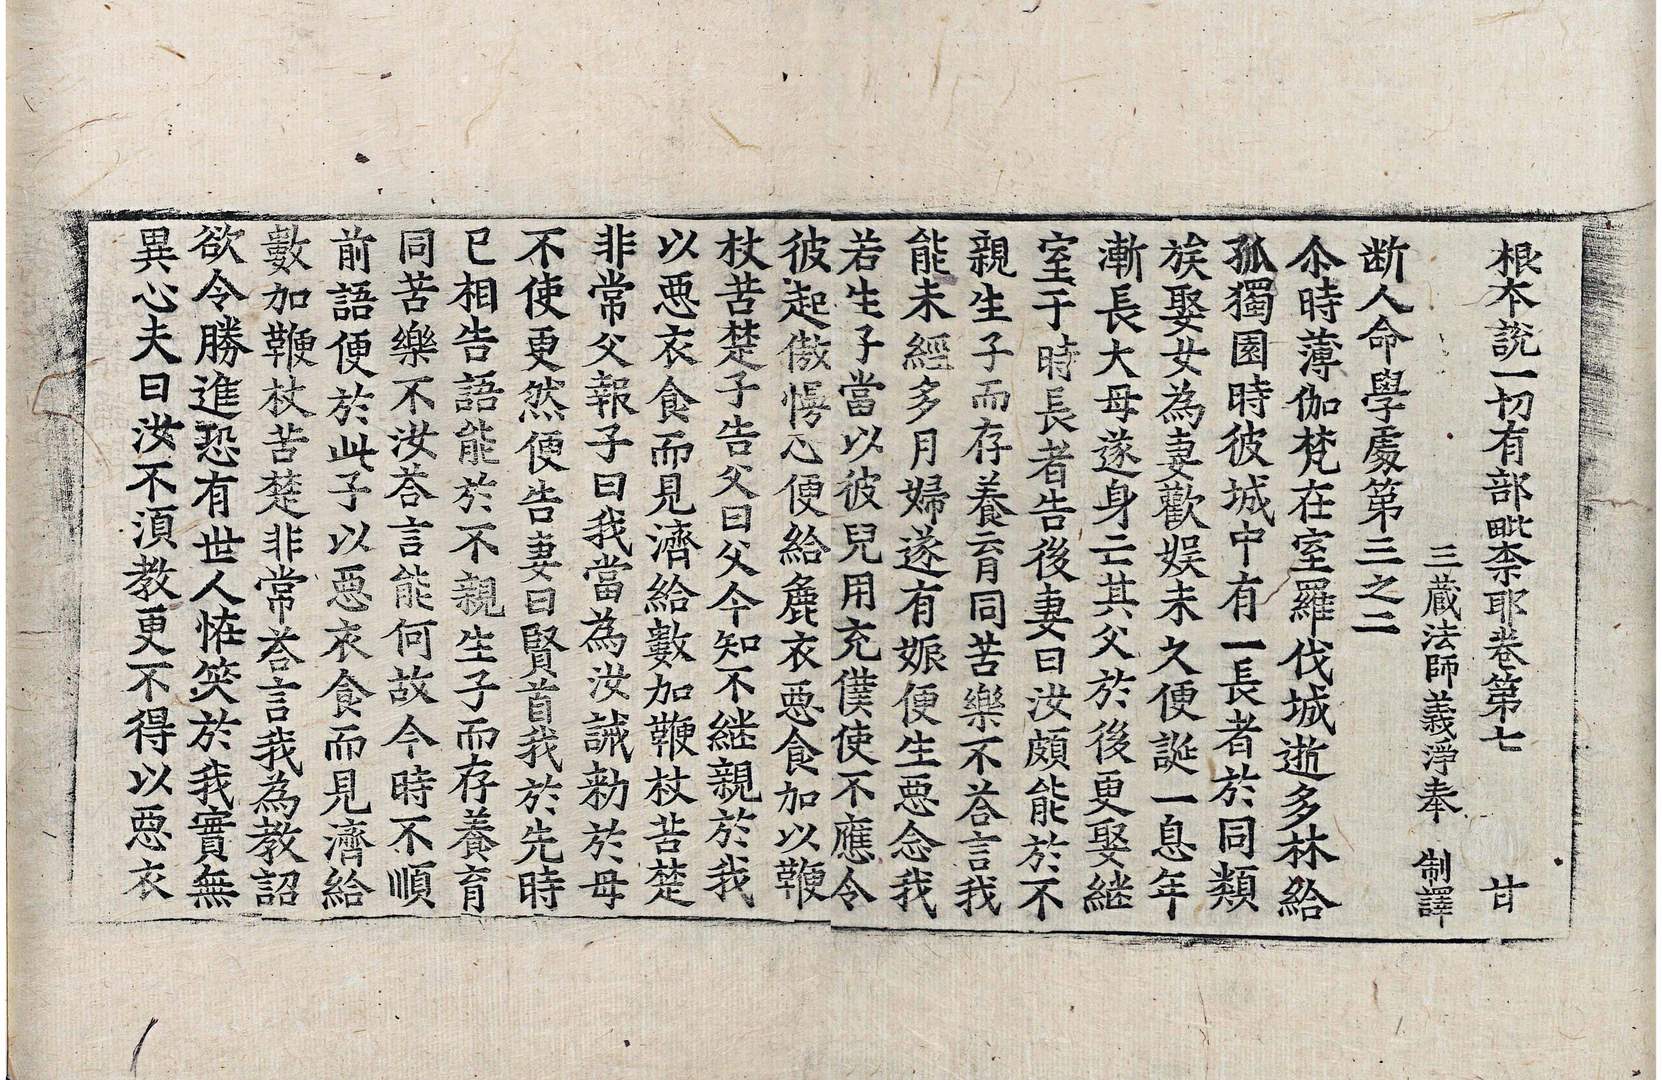 根本説一切有部毗柰耶卷第七 甘
三藏法師義淨奉 制譯
断人命學處第三之二
尒時薄伽梵在室羅伐城逝多林給
孤獨園時彼城中有一長者於同類
族娶女為妻歡娱未久便誕一息年
漸長大母遂身亡其父於後更娶継
室于時長者告後妻曰汝頗能於不
親生子而存養育同苦樂不荅言我
能未經多月婦遂有娠便生惡念我
若生子當以彼兒用充僕使不應令
彼起傲愕心便給麁衣惡食加以鞭
杖苦楚子告父曰父今知不継親於我
以惡衣食而見濟給數加鞭杖苦楚
非常父報子曰我當為汝誡勑於母
不使更然便告妻曰賢首我於先時
已相告語能於不親生子而存養育
同苦樂不汝荅言能何故今時不順
前語便於此子以惡衣食而見濟給
數加鞭杖苦楚非常荅言我為教詔
欲令勝進恐有世人恠笑於我實無
異心夫曰汝不須教更不得以惡衣